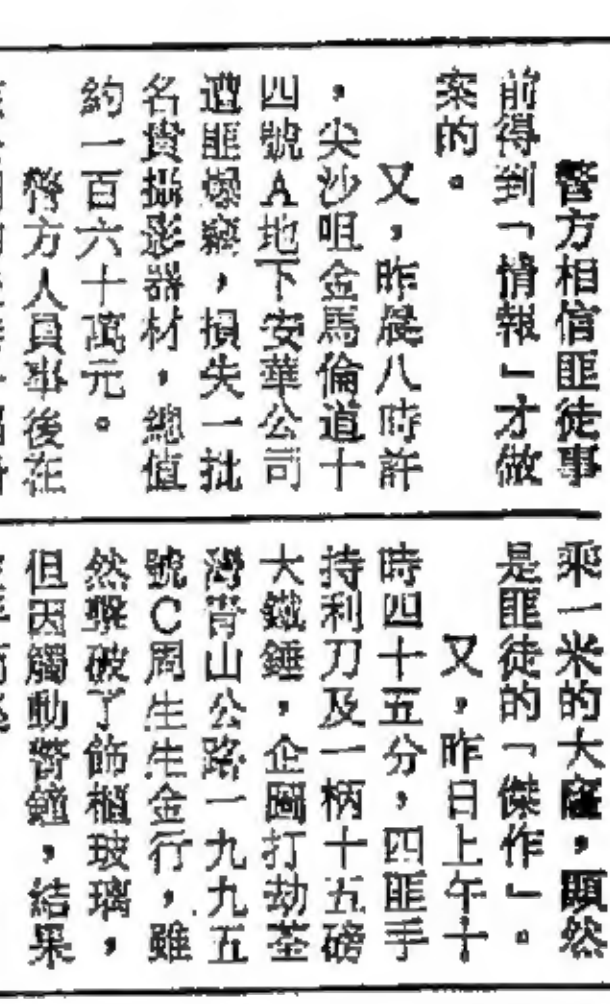 警方相信匪徒事
前得到「情報」才做
案的。
又，昨晨八時許
，尖沙咀金馬倫道十
四號A地下安華公司
遭匪爆竊，損失一批
名貴攝影器材，總值
約一百六十萬元。
警方人員事後在
乘一米的大窿，顯然
是匪徒的「傑作」。
又，昨日上午十
時四十五分，四匪手
持利刀及一柄十五磅
大鐵錘，企圖打劫荃
灣青山公路一九九五
號C周生生金行，雖
然擊破了飾櫃玻璃，
但因觸動警鐘，結果